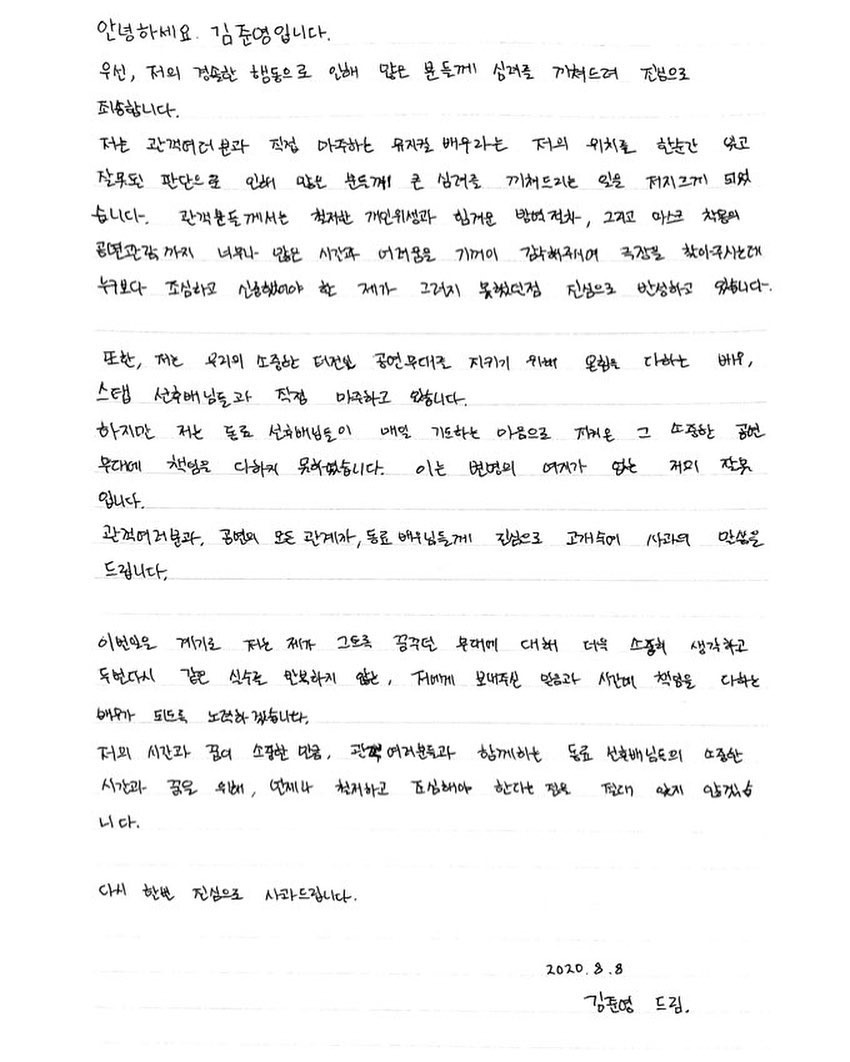 안녕하세요. 김준영입니다.
우선, 저의 경솔한 행동으로 인해 많은 분들께 심려를 끼쳐드려 진심으로
죄송합니다.
저는 관객여러분과 직접 마주하는 뮤지컬 배우라는 저의 위치를 한순간 잊고
잘못된 판단으로 인해 많은 분들께 큰 심려를 끼쳐드리는 일을 저지르게 되었
습니다. 관객분들께서는 철저한 개인위생과 힘겨운 방역절차, 그리고 마스크 착용의
공연관람까지 너무나 많은 시간과 어려움을 기꺼이 감수해주시며 극장을 찾아주시는데
누구보다 조심하고 신중했어야 한 제가 그러지 못했던점 진심으로 반성하고 있습니다.
또한, 저는 우리의 소중한 터전인 공연무대를 지키기 위해 온힘을 다하는 배우,
스탭 선후배님들과 직접 마주하고 있습니다.
하지만 저는 동료 선후배님들이 매일 기도하는 마음으로 지켜온 그 소중한 공연
무대에 책임을 다하지 못하였습니다. 이는 변명의 여지가 없는 저의 잘못
입니다.
관객여러분과, 공연의 모든 관계자, 동료 배우님들께 진심으로 고개숙여 사과의 말씀을
드립니다.
이번일을 계기로 저는 제가 그토록 꿈꾸던 무대에 대해 더욱 소중히 생각하고
두번다시 같은 실수를 반복하지 않는, 저에게 보내주신 믿음과 시간에 책임을 다하는
배우가 되도록 노력하겠습니다.
저의 시간과 꿈이 소중한 만큼, 관객여러분들과 함께하는 동료 선후배님들의 소중한
시간과 꿈을 위해, 언제나 철저하고 조심해야 한다는 점을 절대 잊지 않겠습
니다.
다시 한번 진심으로 사과드립니다.
2020.8.8
김준영 드림.